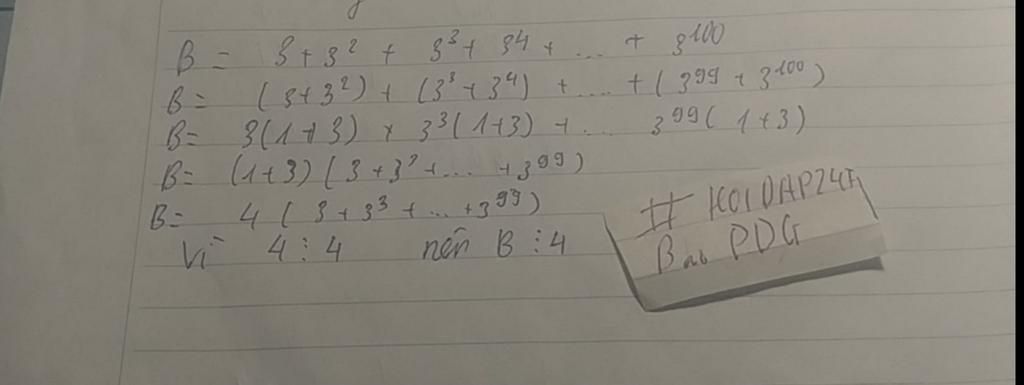 B = 3 + 3² + 3³ + 3⁴ + ... + 3¹⁰⁰
B = (3 + 3²) + (3³ + 3⁴) + ... + (3⁹⁹ + 3¹⁰⁰)
B = 3(1+3) + 3³(1+3) + ... 3⁹⁹(1+3)
B = (1+3)(3 + 3³ + ... + 3⁹⁹)
B = 4(3 + 3³ + ... + 3⁹⁹)
Vì 4 ⋮ 4 nên B ⋮ 4
# HOIDAP247
Bao PDG